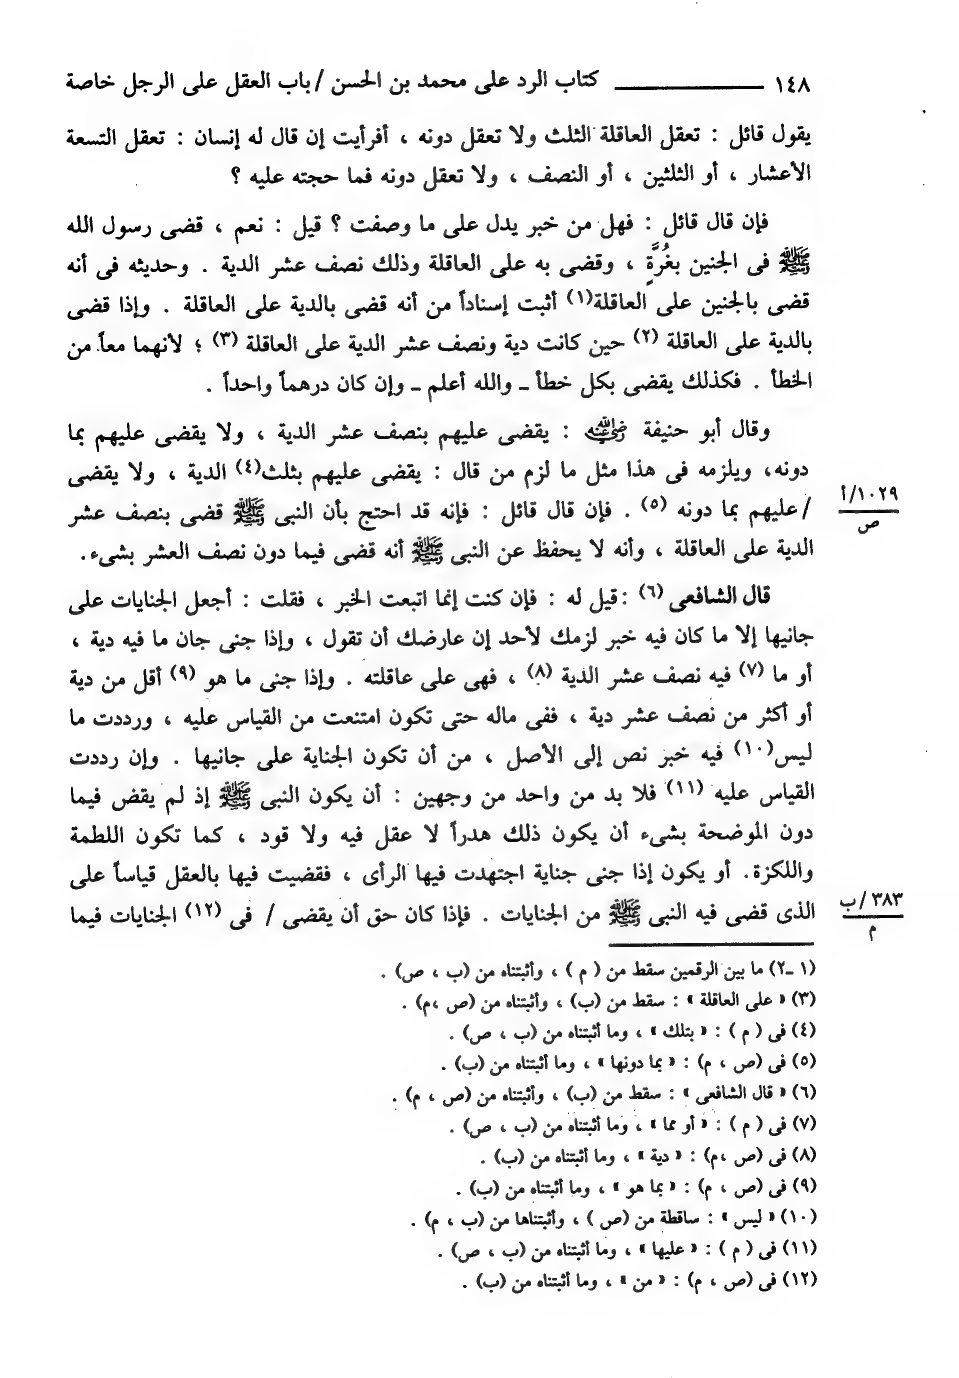 ١٤٨ ـــــــــ كتاب الرد على محمد بن الحسن / باب العقل على الرجل خاصة
يقول قائل : تعقل العاقلة الثلث ولا تعقل دونه ، أفرأيت إن قال له إنسان : تعقل التسعة
الأعشار ، أو الثلثين ، أو النصف ، ولا تعقل دونه فما حجته عليه ؟
فإن قال قائل : فهل من خبر يدل على ما وصفت ؟ قيل : نعم ، قضى رسول الله
ﷺ فى الجنين بغُرَّةٍ ، وقضى به على العاقلة وذلك نصف عشر الدية . وحديثه فى أنه
قضى بالجنين على العاقلة(١) أثبت إسناداً من أنه قضى بالدية على العاقلة . وإذا قضى
بالدية على العاقلة (٢) حين كانت دية ونصف عشر الدية على العاقلة (٣) ؛ لأنهما معاً من
الخطأ . فكذلك يقضى بكل خطأ ـ والله أعلم ـ وإن كان درهماً واحداً .
وقال أبو حنيفة رضي الله عنه : يقضى عليهم بنصف عشر الدية ، ولا يقضى عليهم بما
دونه، ويلزمه فى هذا مثل ما لزم من قال : يقضى عليهم بثلث(٤) الدية ، ولا يقضى
/ عليهم بما دونه (٥) . فإن قال قائل : فإنه قد احتج بأن النبى ﷺ قضى بنصف عشر
١٠٢٩/أ
ص
الدية على العاقلة ، وأنه لا يحفظ عن النبى ﷺ أنه قضى فيما دون نصف العشر بشىء.
قال الشافعى (٦) : قيل له : فإن كنت إنما اتبعت الخبر ، فقلت : أجعل الجنايات على
جانيها إلا ما كان فيه خبر لزمك لأحد إن عارضك أن تقول ، وإذا جنى جان ما فيه دية ،
أو ما (٧) فيه نصف عشر الدية (٨) ، فهى على عاقلته . وإذا جنى ما هو (٩) أقل من دية
أو أكثر من نصف عشر دية ، ففى ماله حتى تكون امتنعت من القياس عليه ، ورددت ما
ليس(١٠) فيه خبر نص إلى الأصل ، من أن تكون الجناية على جانيها . وإن رددت
القياس عليه (١١) فلا بد من واحد من وجهين : أن يكون النبى ﷺ إذ لم يقض فيما
دون الموضحة بشىء أن يكون ذلك هدراً لا عقل فيه ولا قود ، كما تكون اللطمة
واللكزة. أو يكون إذا جنى جناية اجتهدت فيها الرأى ، فقضيت فيها بالعقل قياساً على
الذى قضى فيه النبى ﷺ من الجنايات . فإذا كان حق أن يقضى / فى (١٢) الجنايات فيما
٣٨٣/ب
م
(١ -٢) ما بين الرقمين سقط من ( م ) ، وأثبتناه من (ب ، ص) .
(٣) « على العاقلة » : سقط من (ب) ، وأثبتناه من (ص ،م) .
(٤) فى ( م ) : « بتلك » ، وما أثبتناه من (ب ، ص) .
(٥) فى (ص ، م) : « بما دونها » ، وما أثبتناه من (ب) .
(٦) « قال الشافعى » : سقط من (ب) ، وأثبتناه من (ص ، م) .
(٧) فى ( م ) : « أو مما » ، وما أثبتناه من (ب ، ص) .
(٨) فى (ص ،م) : « دية » ، وما أثبتناه من (ب) .
(٩) فى (ص ، م) : « بما هو » ، وما أثبتناه من (ب) .
(١٠) « ليس » : ساقطة من (ص ) ، وأثبتناها من (ب ، م) .
(١١) فى ( م ) : « عليها » ، وما أثبتناه من (ب ، ص) .
(١٢) فى (ص ، م) : « من » ، وما أثبتناه من (ب) .